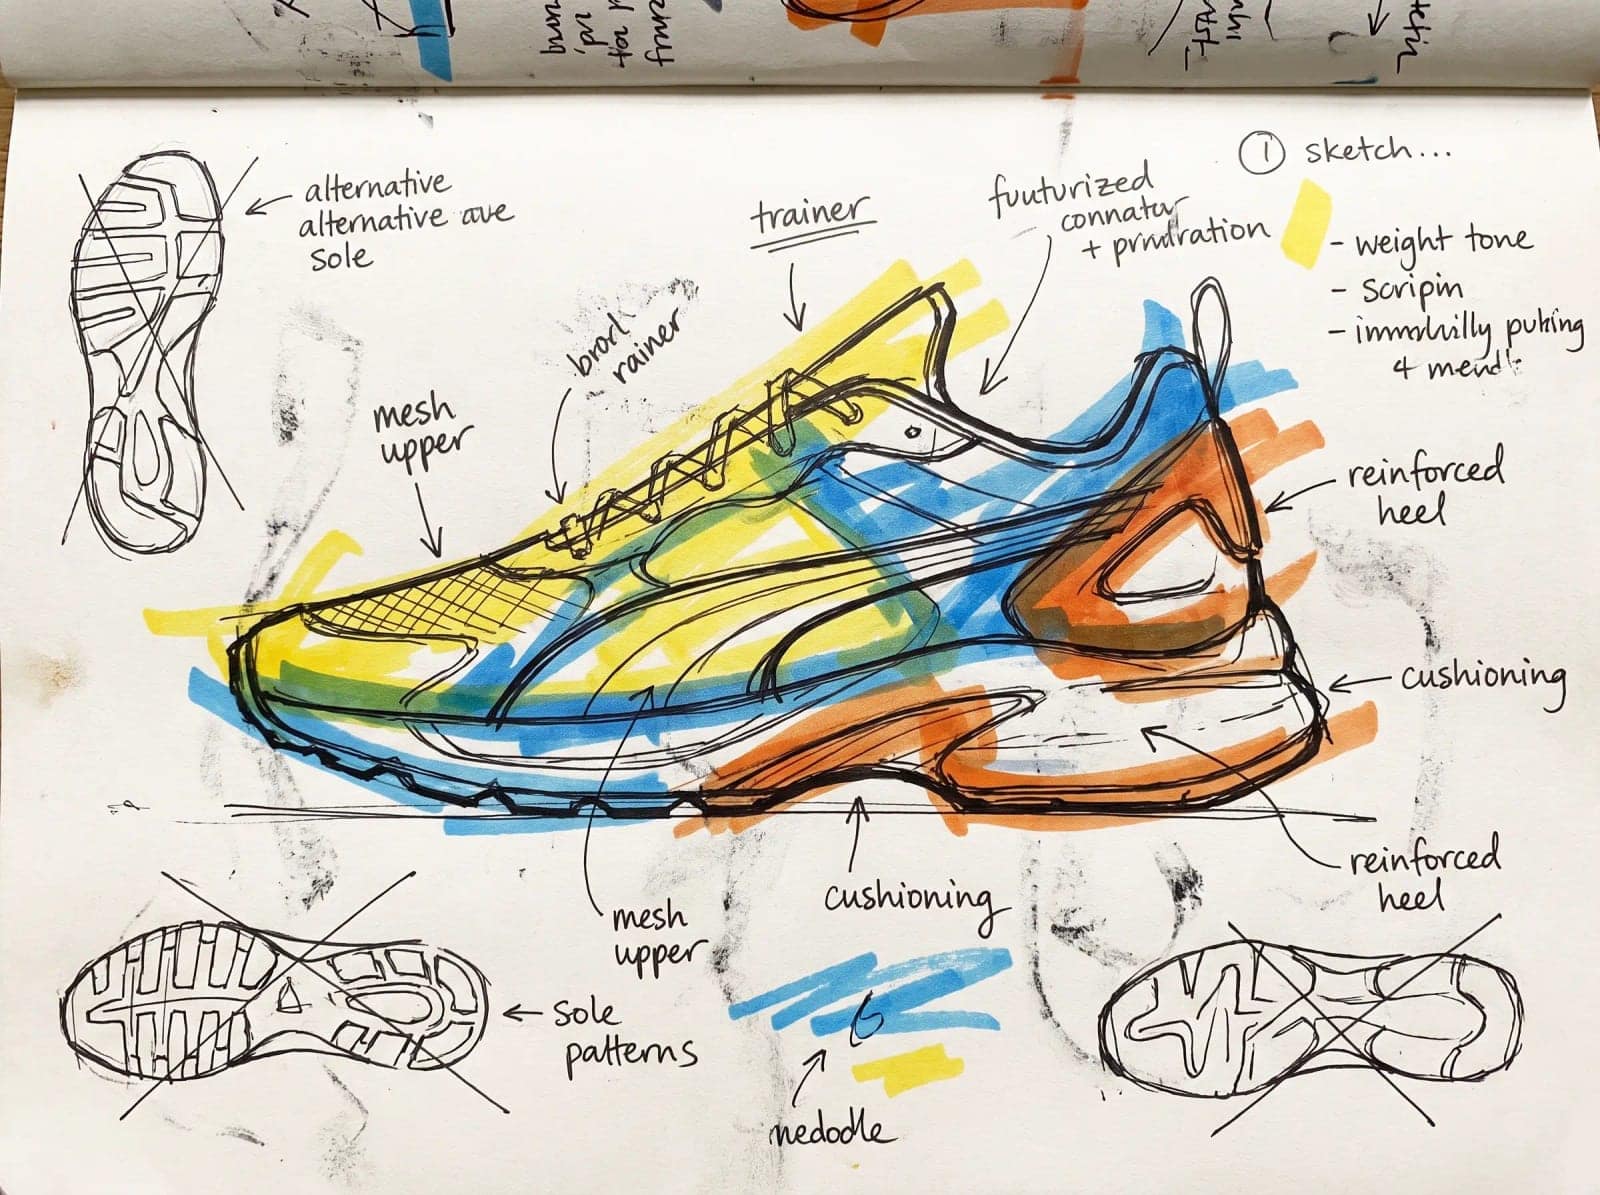 alternative
alternative ave
sole
trainer
fuuturized
connatur
+
① sketch...
- weight tone
- scripin
-
4
brorl
rainer
mesh
upper
reinforced
heel
cushioning
reinforced
heel
cushioning
mesh
upper
sole
patterns
6
nedodle